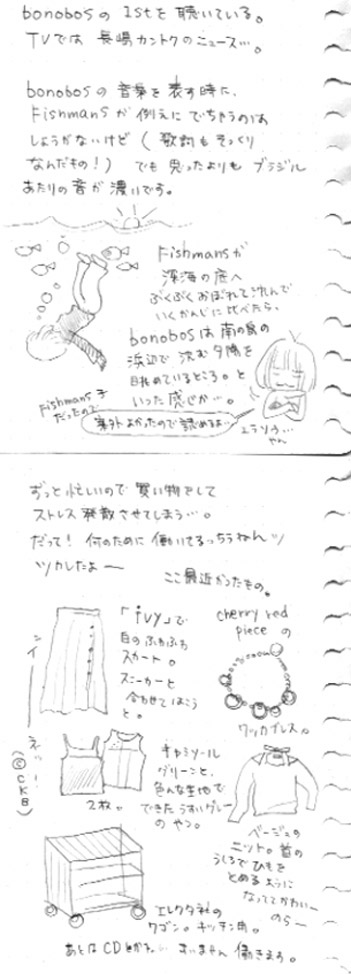 bonobosの 1stを 聴いている。
TVでは 長嶋カントクのニュース…。
bonobosの 音楽を 表す時に、
Fishmansが 例えに でちゃうのは
しょうがないけど ( 歌詞も そっくり
なんだもの! ) でも 思ったよりも ブラジル
あたりの音が 濃いです。
Fishmansが
深海の底へ
ぶくぶく おぼれて沈んで
いくかんじに 比べたら、
bonobosは 南の島の
浜辺で 沈む夕陽を
眺めているところ。と
いった 感じか…。
Fishmans子
だったので
案外 よかったので 認めるよ…
エラソウ…
やん
ずっと忙しいので 買い物をして
ストレス 発散させてしまう…。
だって! 何のために 働いてるっちうねんッ
ツカレたよー
ここ最近かったもの。
「ivy」で
白のふわふわ
スカート。
スニーカーと
合わせてはこう
と。
cherry red
piece の
ワッカブレス。
(©CKB)
キャミソール
グリーンと、
色んな生地で
できた うすいグレー
の やつ。
2枚。
ベージュの
ニット。首の
うしろでひもを
とめるように
なっててかわいー
のらー
エレクタ社の
ワゴン。キッチン用。
あとは CDとかね… すいません 働きます。